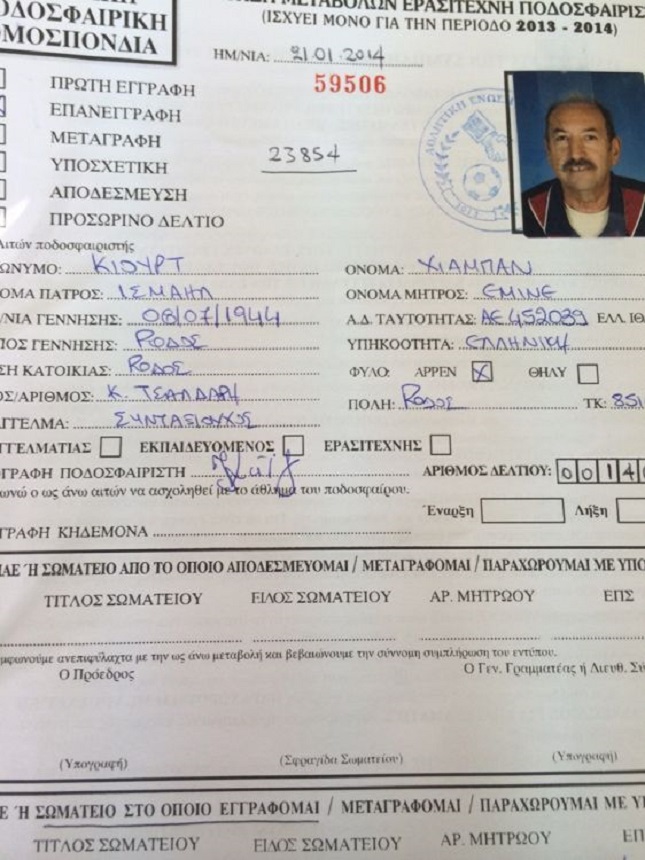 ΠΟΔΟΣΦΑΙΡΙΚΗ
ΟΜΟΣΠΟΝΔΙΑ
ΜΕΤΑΒΟΛΩΝ ΕΡΑΣΙΤΕΧΝΗ
(ΙΣΧΥΕΙ ΜΟΝΟ ΓΙΑ ΤΗΝ ΠΕΡΙΟΔΟ 2013 - 2014)
ΗΜ/ΝΙΑ: 21.01.2014
59506
ΠΡΩΤΗ ΕΓΓΡΑΦΗ
ΕΠΑΝΕΓΓΡΑΦΗ
ΜΕΤΑΓΡΑΦΗ
ΥΠΟΣΧΕΤΙΚΗ
23854
ΑΠΟΔΕΣΜΕΥΣΗ
ΠΡΟΣΩΡΙΝΟ ΔΕΛΤΙΟ
Αιτών ποδοσφαιριστής
ΩΝΥΜΟ: ΚΙΟΥΡΤ ΟΝΟΜΑ: ΧΙΑΜΠΑΝ
ΟΜΑ ΠΑΤΡΟΣ: ΙΣΜΑΗΛ ΟΝΟΜΑ ΜΗΤΡΟΣ: ΕΜΙΝΕ
/ΝΙΑ ΓΕΝΝΗΣΗΣ: 08/07/1944 Α.Δ. ΤΑΥΤΟΤΗΤΑΣ: ΑΕ 452039 ΕΛΛ. ΙΘ
ΟΣ ΓΕΝΝΗΣΗΣ: ΡΟΔΟΣ ΥΠΗΚΟΟΤΗΤΑ: ΕΛΛΗΝΙΚΗ
ΣΗ ΚΑΤΟΙΚΙΑΣ: ΡΟΔΟΣ ΦΥΛΟ: ΑΡΡΕΝ X ΘΗΛΥ
ΟΣ/ΑΡΙΘΜΟΣ: Κ. ΤΣΑΛΔΑΡΗ ΠΟΛΗ: ΡΟΔΟΣ ΤΚ: 851
ΓΓΕΛΜΑ: ΣΥΝΤΑΞΙΟΥΧΟΣ
ΓΓΕΛΜΑΤΙΑΣ ΕΚΠΑΙΔΕΥΟΜΕΝΟΣ ΕΡΑΣΙΤΕΧΝΗΣ
ΟΓΡΑΦΗ ΠΟΔΟΣΦΑΙΡΙΣΤΗ ΑΡΙΘΜΟΣ ΔΕΛΤΙΟΥ: 0 0 1 4
ωνώ ο ως άνω αιτών να ασχοληθεί με το άθλημα του ποδοσφαίρου.
Έναρξη Λήξη
ΓΡΑΦΗ ΚΗΔΕΜΟΝΑ
ΑΕ Ή ΣΩΜΑΤΕΙΟ ΑΠΟ ΤΟ ΟΠΟΙΟ ΑΠΟΔΕΣΜΕΥΟΜΑΙ / ΜΕΤΑΓΡΑΦΟΜΑΙ / ΠΑΡΑΧΩΡΟΥΜΑΙ ΜΕ ΥΠΟ
ΤΙΤΛΟΣ ΣΩΜΑΤΕΙΟΥ ΕΙΔΟΣ ΣΩΜΑΤΕΙΟΥ ΑΡ. ΜΗΤΡΩΟΥ ΕΠΣ
μφωνούμε ανεπιφύλαχτα με την ως άνω μεταβολή και βεβαιώνουμε την σύννομη συμπλήρωση του εντύπου.
Ο Πρόεδρος Ο Γεν. Γραμματέας ή Διευθ. Σύ
(Υπογραφή) (Σφραγίδα Σωματείου) (Υπογραφή)
Ε Ή ΣΩΜΑΤΕΙΟ ΣΤΟ ΟΠΟΙΟ ΕΓΓΡΑΦΟΜΑΙ / ΜΕΤΑΓΡΑΦΟΜΑΙ / ΠΑΡΑΧΩΡΟΥΜΑΙ ΜΕ Υ
ΤΙΤΛΟΣ ΣΩΜΑΤΕΙΟΥ ΕΙΔΟΣ ΣΩΜΑΤΕΙΟΥ ΑΡ. ΜΗΤΡΩΟΥ ΕΠ